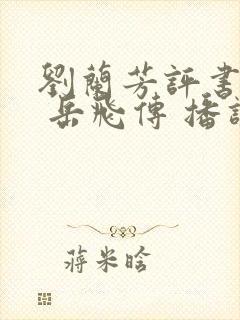 劉蘭芳評書
岳飛傳 播
蔣米晗